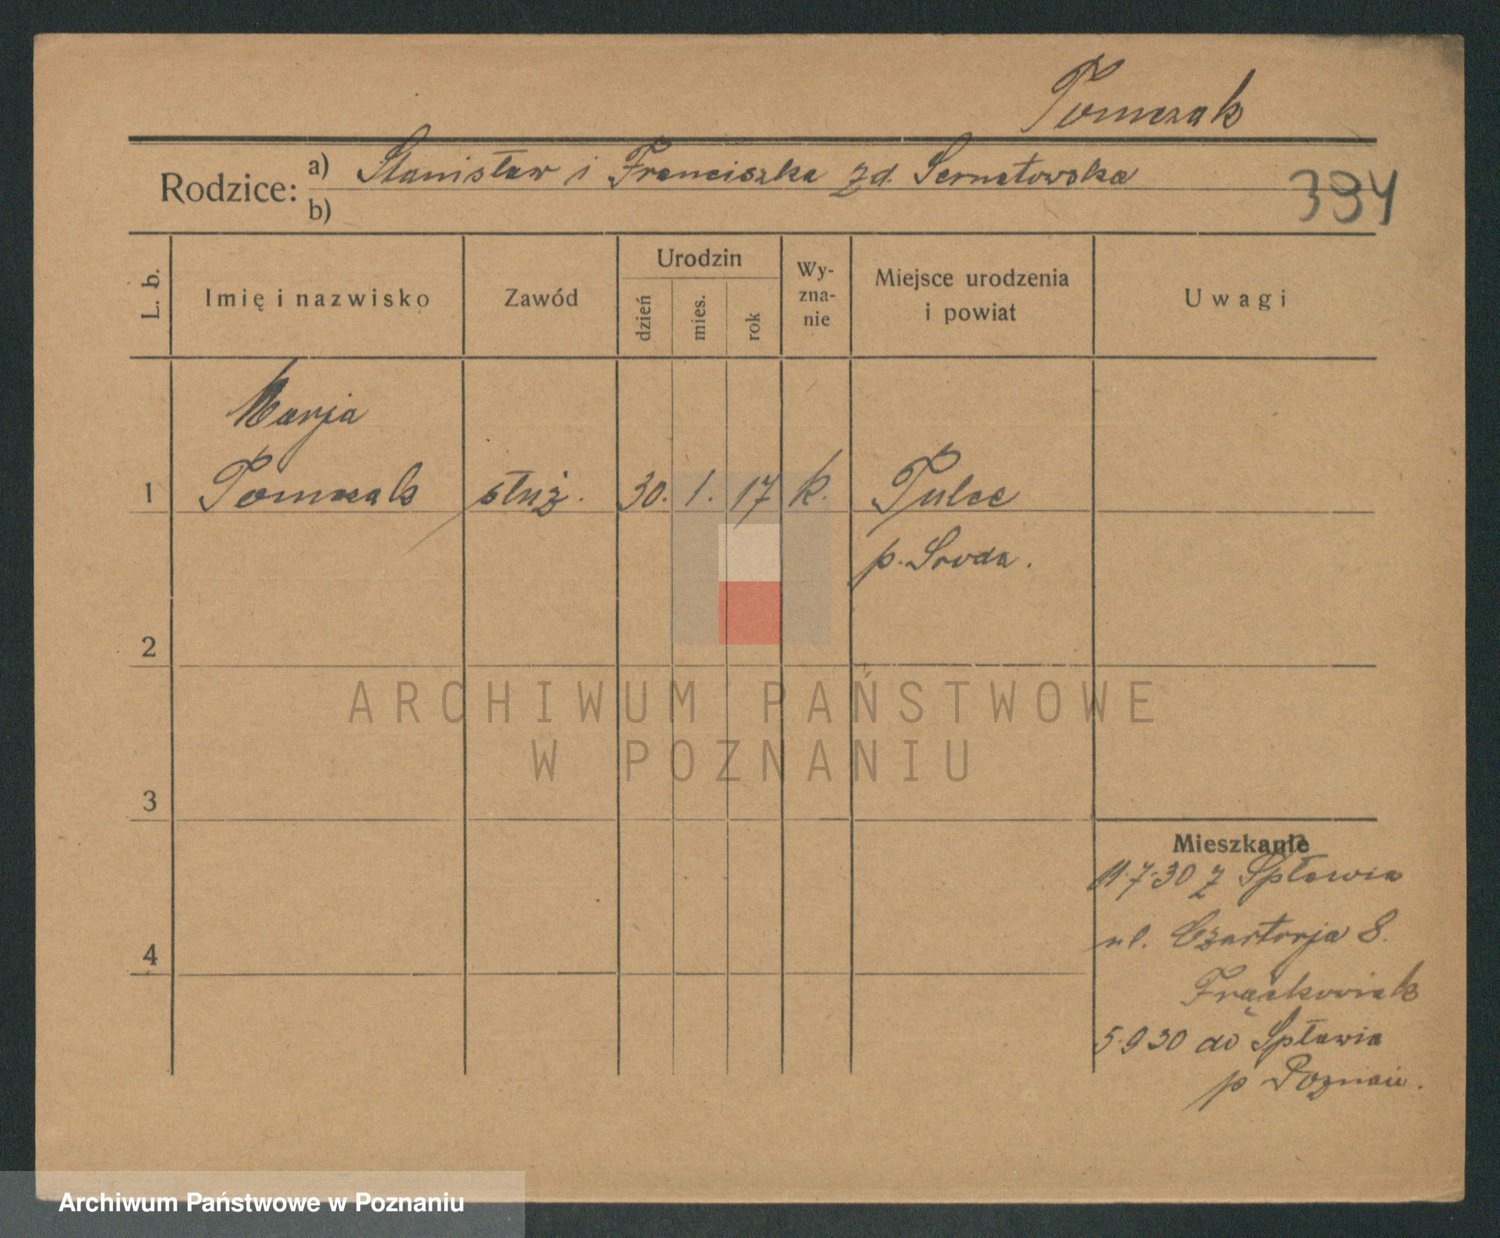 Tomczak
Rodzice: a) Stanisław i Franciszka zd. Sernatowska
b)
394
L. b.
Imię i nazwisko
Zawód
Urodzin
dzień
mies.
rok
Wy-
zna-
nie
Miejsce urodzenia
i powiat
Uwagi
Marja
1 Tomczak służ. 30. 1. 17 k. Tulce
p. Sroda.
2
ARCHIWUM PAŃSTWOWE
W POZNANIU
3
Mieszkanie
11.7.30 z Spławia
ul. Czartorja 8.
4
Frąckowiak
5.9.30 do Spławia
p Poznań.
Archiwum Państwowe w Poznaniu